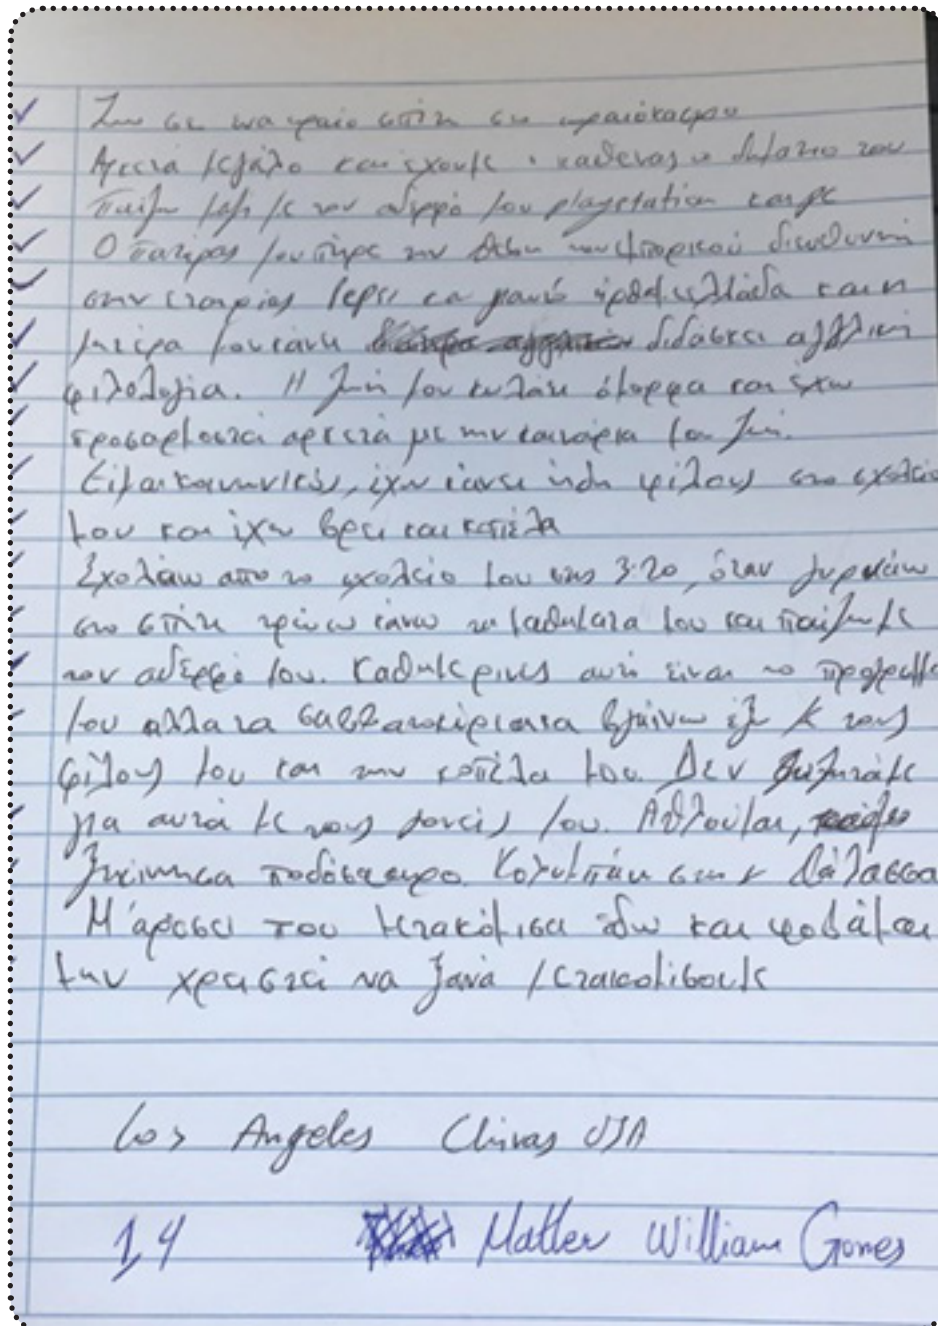 Ζω σε ένα ωραίο σπίτι σε
Αρκετά μεγάλο και έχουμε ο καθένας το δωμάτιο του
Παίζω μαζί με τον αδερφό μου playstation και με
Ο πατέρας μου πήρε την θέση του εμπορικού διευθυντή
στην εταιρίας και η
μητέρα μου κάνει διδάσκει αγγλική
φιλολογία. Η ζωή μου κυλάει όμορφα και έχω
προσαρμοστεί αρκετά με την καινούρια μου ζωή.
Είμαι κοινωνικός, έχω κάνει ήδη φίλους στο σχολείο
μου και έχω βρει και κοπέλα
Σχολάω απο το σχολείο μου στις 3:20, όταν γυρνάω
στο σπίτι τρώω κάνω τα μαθήματα μου και παίζω με
τον αδερφό μου. Καθημερινές αυτό είναι το προγραμμα
μου αλλα τα σαββατοκύριακα βγαίνω έξω με τους
φίλους μου και την κοπέλα μου. Δεν συζητάμε
για αυτά με τους γονείς μου. Αθλούμαι,
ξεκίνησα ποδόσφαιρο. Κολυμπάω στην θάλασσα
Μ'άρεσει που μετακόμισα εδω και φοβάμαι
μην χρειαστεί να ξανά μετακομίσουμε
Los Angeles Chivas USA
14 William Gomes